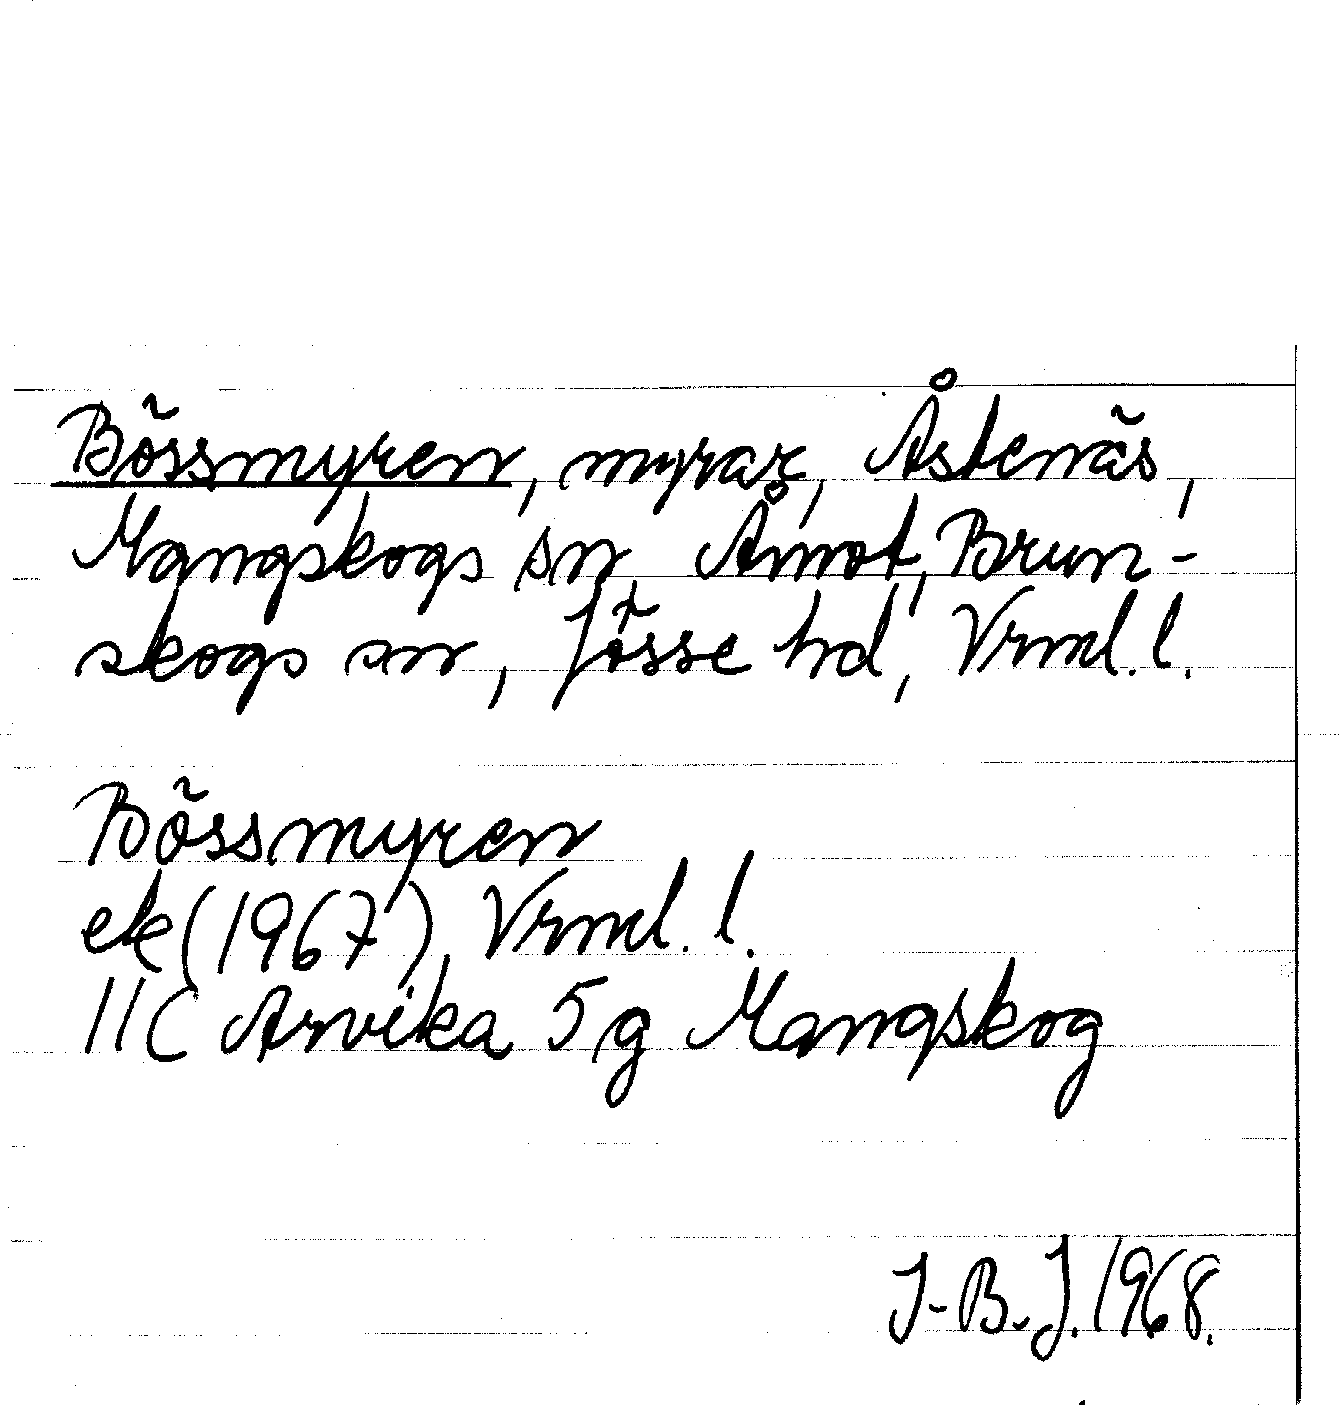 Bössmyren, myrar, Åstenäs,
Mangskogs sn, Åmot, Brun-
skogs sn, Jösse hd, Vrml. l.
Bössmyren
ek (1967), Vrml. l.
11C Arvika 5g Mangskog
I-B.J. 1968.